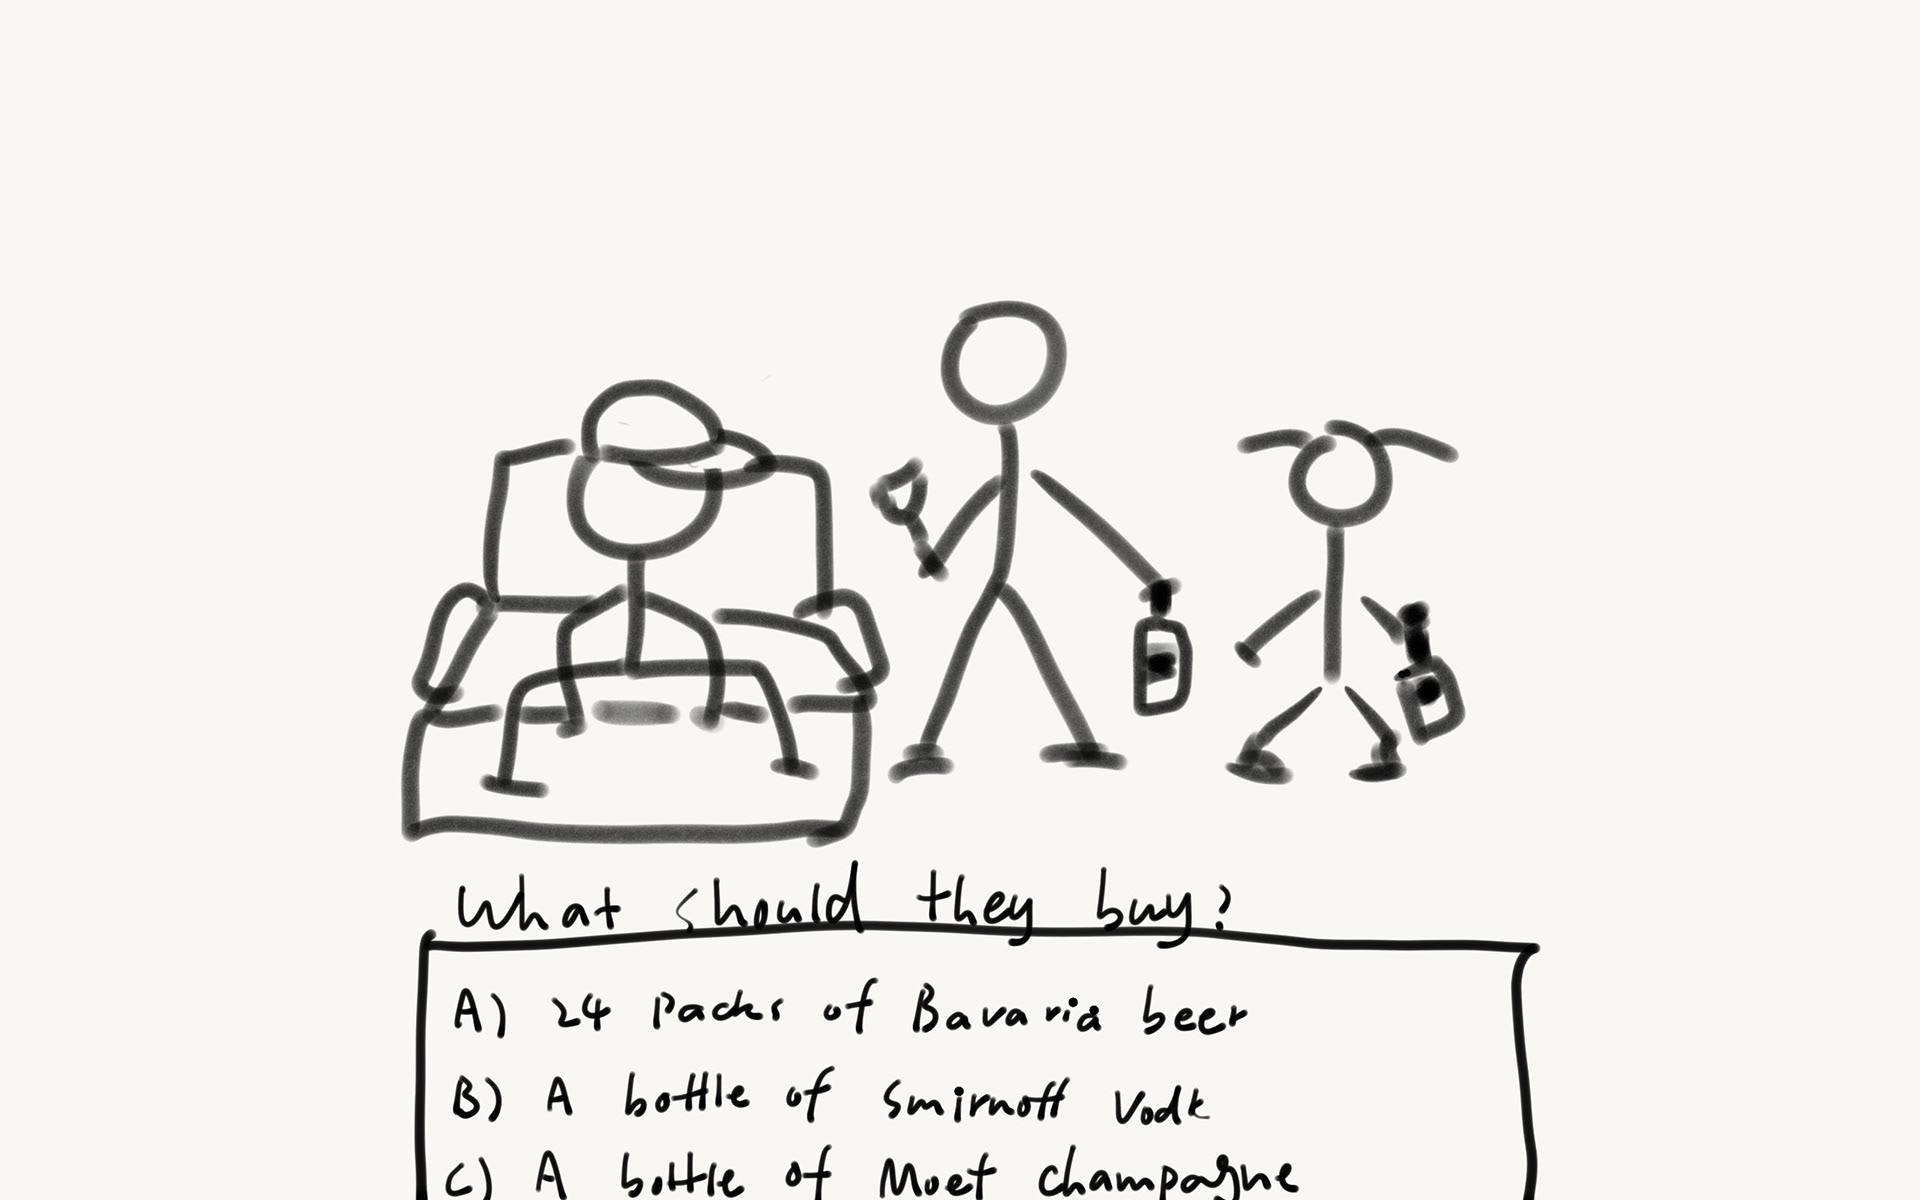 What should they buy?
A) 24 packs of Bavaria beer
B) A bottle of Smirnoff Vodk
C) A bottle of Moet champagne